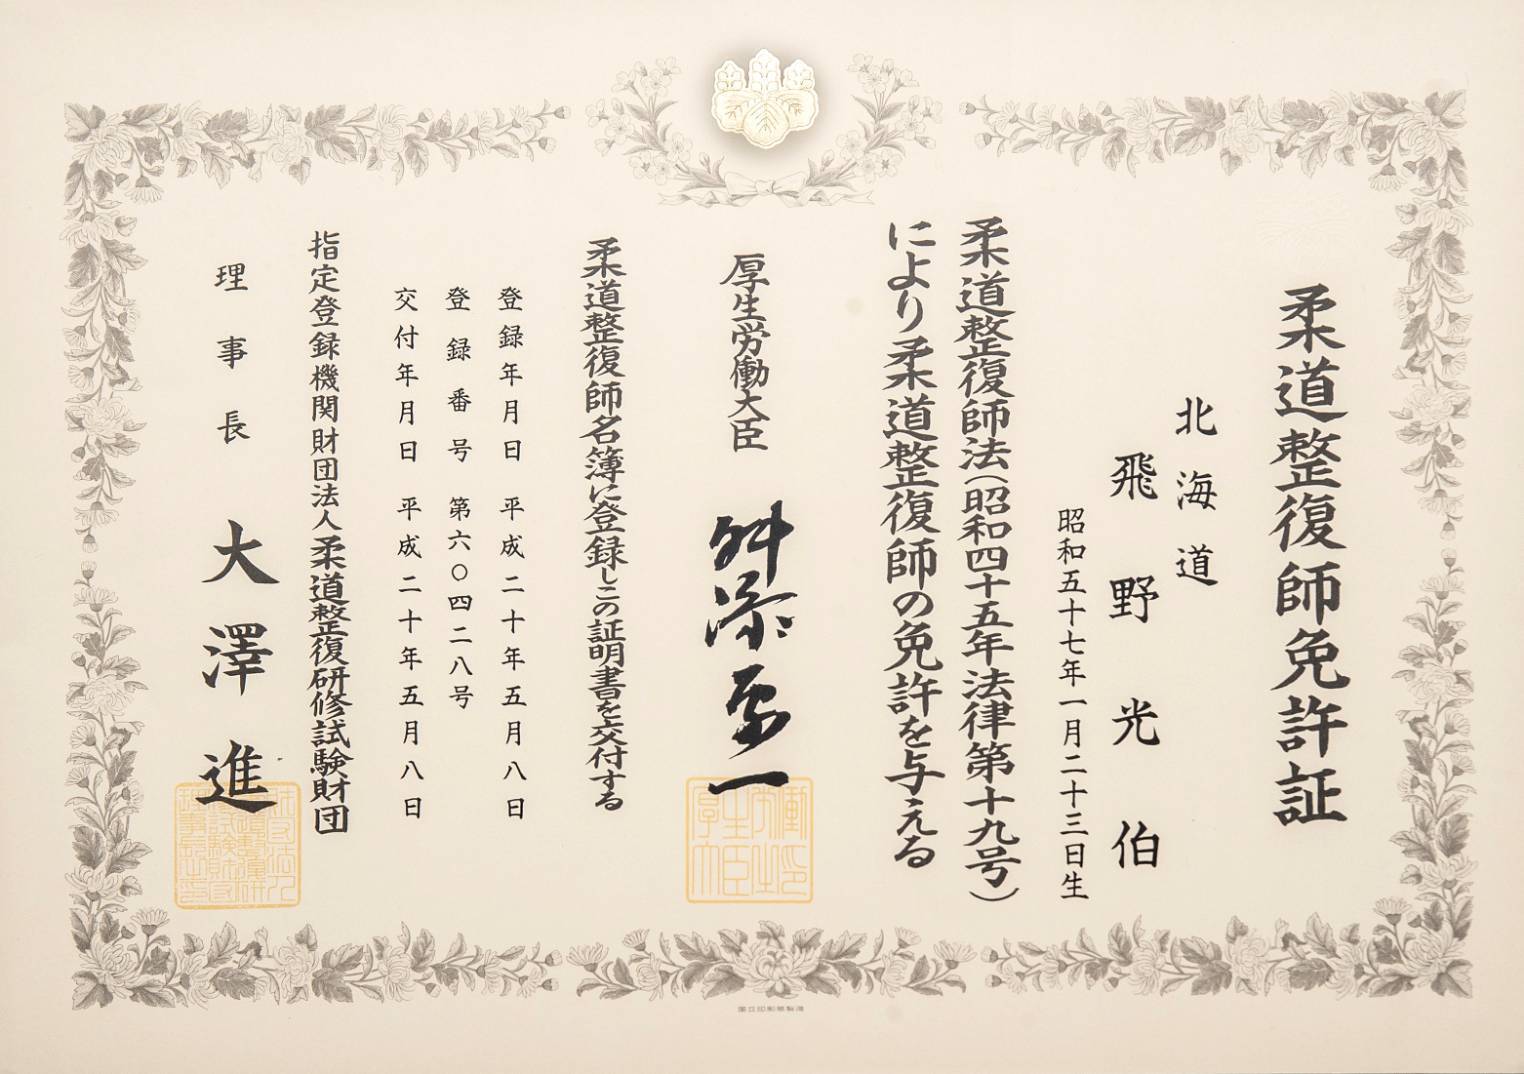 柔道整復師免許証
北海道
飛野光伯
昭和五十七年一月二十三日生
柔道整復師法(昭和四十五年法律第十九号)
により柔道整復師の免許を与える
厚生労働大臣 舛添要一
柔道整復師名簿に登録しこの証明書を交付する
登録年月日 平成二十年五月八日
登録番号 第六〇四二八号
交付年月日 平成二十年五月八日
指定登録機関財団法人柔道整復研修試験財団
理事長 大澤進